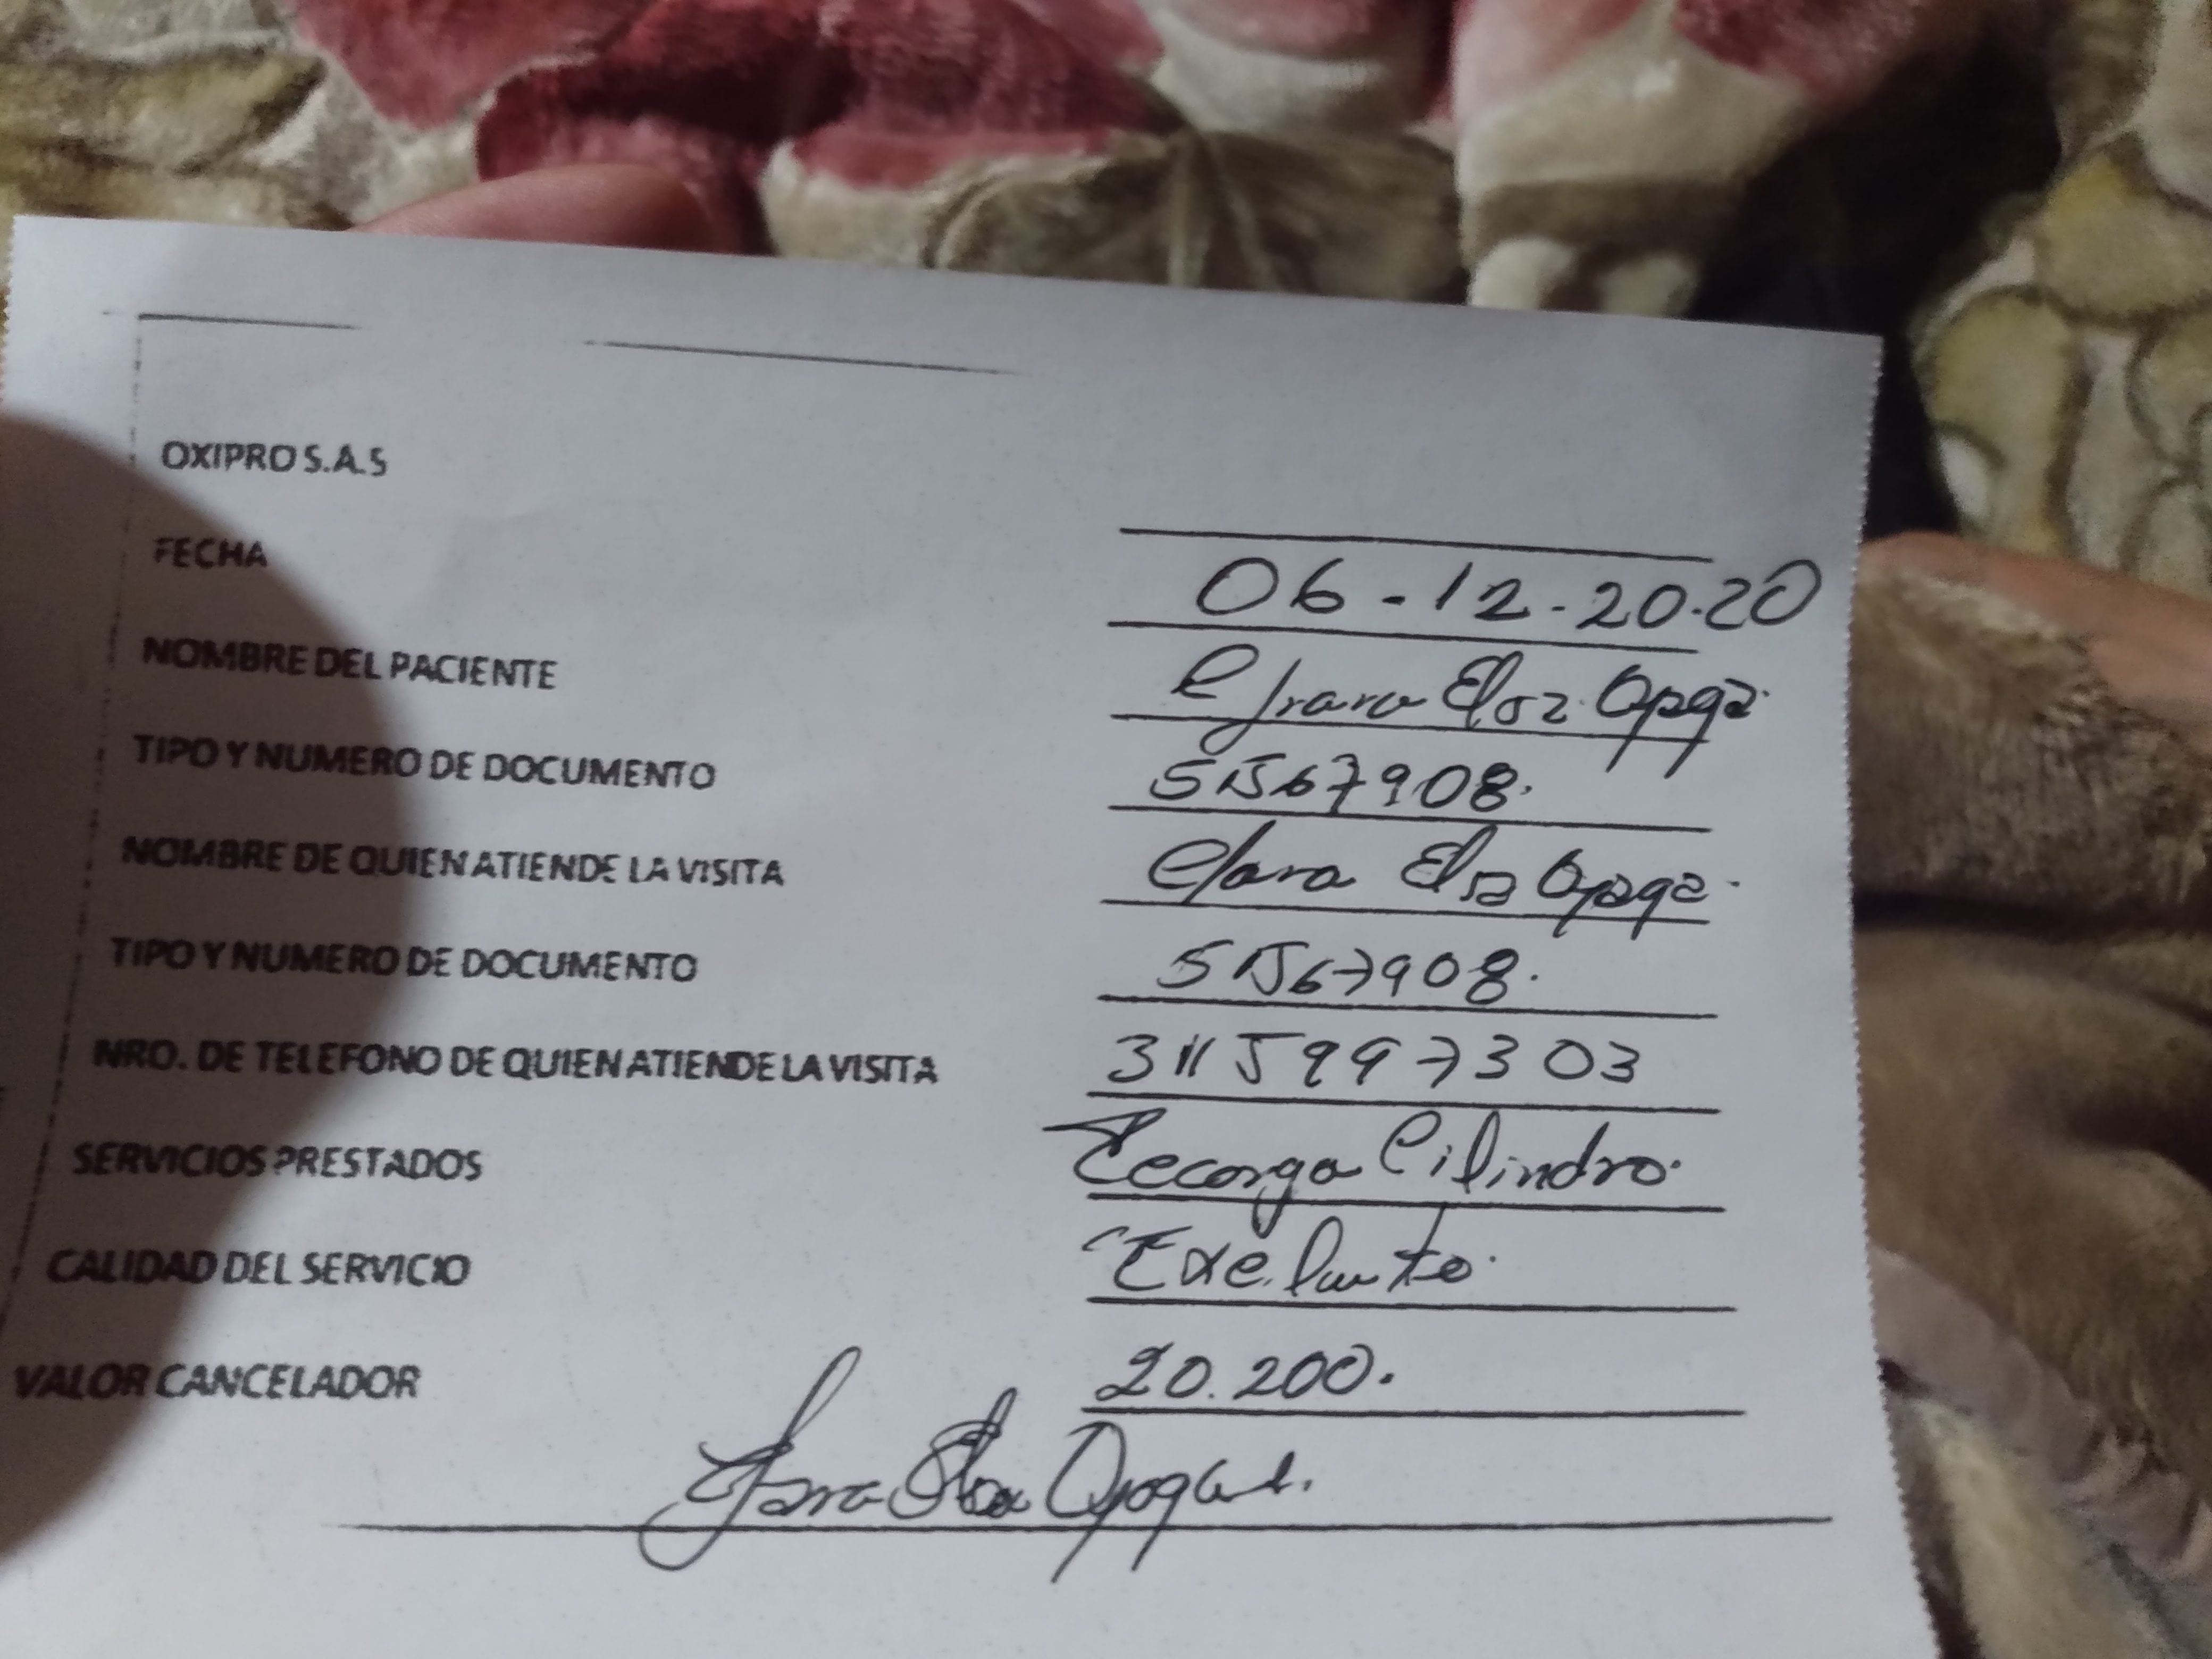 OXIPRO S.A.S
FECHA 06-12-20.20
NOMBRE DEL PACIENTE Elsa Opaga.
TIPO Y NUMERO DE DOCUMENTO 51567908.
NOMBRE DE QUIEN ATIENDE LA VISITA Clara Elsa Opaga.
TIPO Y NUMERO DE DOCUMENTO 51567908.
NRO. DE TELEFONO DE QUIEN ATIENDE LA VISITA 3115997303
SERVICIOS PRESTADOS Recarga Cilindro.
CALIDAD DEL SERVICIO Exelente.
VALOR CANCELADOR 20.200.